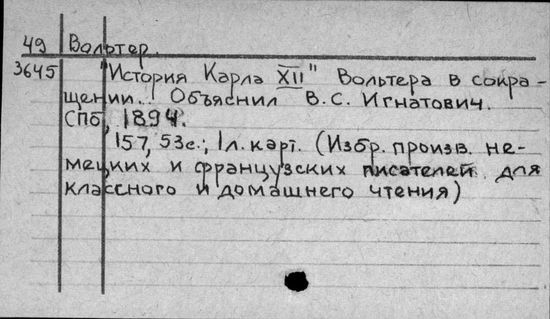 49 Вольтер.
3645 "История Карла XII" Вольтера в сокра-
щении... Объяснил В.С. Игнатович.
СПб, 1894.
157, 53с.; 1л. карт. (Избр. произв. не-
мецких и французских писателей для
классного и домашнего чтения)